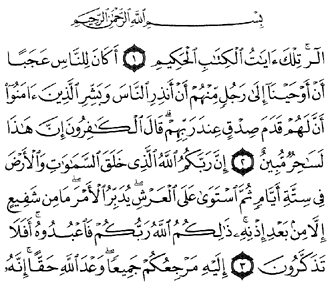 بِسْمِ اللَّهِ الرَّحْمَٰنِ الرَّحِيمِ
الٓر ۚ تِلْكَ ءَايَٰتُ الْكِتَٰبِ الْحَكِيمِ ١ أَكَانَ لِلنَّاسِ عَجَبًا
أَنْ أَوْحَيْنَآ إِلَىٰ رَجُلٍ مِّنْهُمْ أَنْ أَنذِرِ النَّاسَ وَبَشِّرِ الَّذِينَ ءَامَنُوٓا۟
أَنَّ لَهُمْ قَدَمَ صِدْقٍ عِندَ رَبِّهِمْ ۗ قَالَ الْكَٰفِرُونَ إِنَّ هَٰذَا
لَسَٰحِرٌ مُّبِينٌ ٢ إِنَّ رَبَّكُمُ اللَّهُ الَّذِى خَلَقَ السَّمَٰوَٰتِ وَالْأَرْضَ
فِى سِتَّةِ أَيَّامٍ ثُمَّ اسْتَوَىٰ عَلَى الْعَرْشِ ۖ يُدَبِّرُ الْأَمْرَ ۖ مَا مِن شَفِيعٍ
إِلَّا مِنۢ بَعْدِ إِذْنِهِۦ ۚ ذَٰلِكُمُ اللَّهُ رَبُّكُمْ فَاعْبُدُوهُ ۚ أَفَلَا
تَذَكَّرُونَ ٣ إِلَيْهِ مَرْجِعُكُمْ جَمِيعًا ۖ وَعْدَ اللَّهِ حَقًّا ۚ إِنَّهُۥ